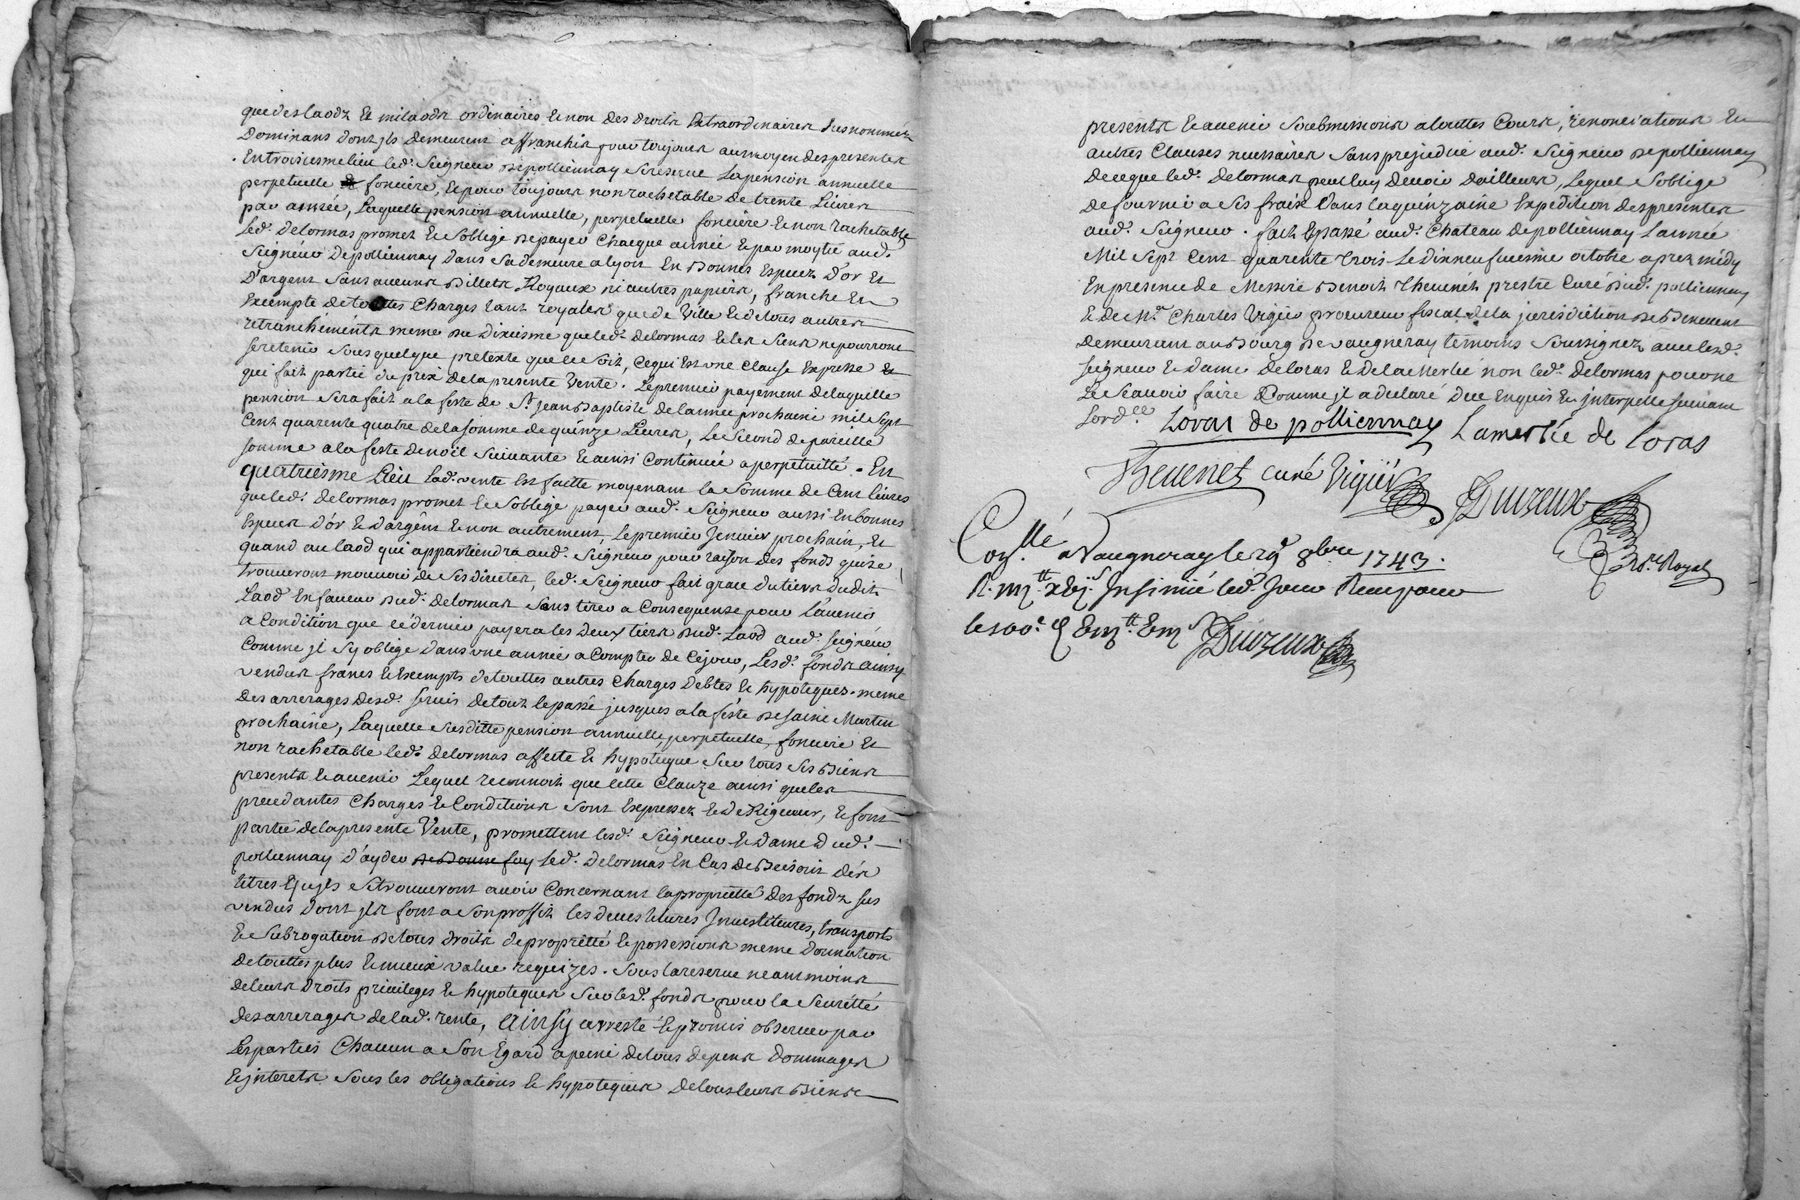 que des laods et milaods ordinaires et non des droits extraordinaires susnommés
Dominans dont ils demeurent affranchis pour toujours au moyen des presentes
. En troisiesme lieu led. Seigneur de polliennay se reserve la pension annuelle
perpetuelle fonciere, et pour toujours non rachetable de trente Livres
par année, Laquelle pension annuelle, perpetuelle fonciere et non rachetable
led. Delormas promet et s'oblige de payer Chaque année et par moytié aud.
Seigneur De polliennay Dans sa demeure a lyon En Bonnes Especes D'or et
D'argent sans aucuns Billets Royaux ni autres papiers, franche et
Exempte de touttes Charges tant royales que de Ville et de tous autres
retranchéments meme du Dixiesme que led. delormas et les siens ne pourront
se retenir sous quelque pretexte que ce soit, Ce qui Est une Clause Expresse et
qui fait partie du prix de la presente Vente. Le premier payement de laquelle
pension sera fait a la feste de St. Jean Baptiste de l'année prochaine mil sept
Cent quarente quatre de la somme de quinze Livres, Le second de pareille
somme a la feste de noël suivante et ainsi Continué a perpetuitté. En
quatriesme Lieu lad. vente Est faitte moyenant la somme de Cent livres
que led. delormas promet et s'oblige payer aud. Seigneur aussi En bonnes
Especes D'or et D'argent et non autrement, Le premier Jenvier prochain, et
quand au laod qui appartiendra aud. Seigneur pour raison des fonds qui se
trouveront mouvoir de ses directes, led. Seigneur fait grace du tiers dudit
Laod En faveur dud. delormas sans tirer a Consequense pour l'avenir
a Condition que ce dernier payera les deux tiers dud. Laod aud. Seigneur
Comme il s'y oblige Dans une année a Compter de Cejour, Lesd. fonds ainsy
vendus francs et Exempts de touttes autres Charges Debtes et hypoteques. meme
Des arrerages desd. servis de tout le passé jusques a la féste de saint Martin
prochaine, Laquelle susditte pension annuelle, perpetuelle, fonciere et
non rachetable led. delormas affecte et hypoteque sur tous ses Biens
presents et avenir Lequel reconnoit que cette Clauze ainsi que les
precedantes Charges et Conditions sont Expresses et de Rigueur, et font
partie de la presente Vente, promettent lesd. Seigneur et Dame Dud.
polliennay D'ayder de Bonne foy led. Delormas En Cas de Besoin des
titres qu'ils se trouveront avoir Concernant la proprietté des fonds sus
vendus dont ils font a son proffit les devestitures Investitures, transports
et subrogation de tous droits de proprietté et possessions meme Donnation
de touttes plus et mieux value requizes. sous la reserve neantmoins
de leurs droits privileges et hypoteques sur lesd. fonds pour la seuretté
des arrerages de lad. rente, Ainsy arresté et promis observer par
les parties Chacun a son Egard a peine de tous depens Dommages
et interets sous les obligations et hypoteques de tous leurs Biens
presents et avenir soubmissions a touttes Cours, renonciations et
autres Clauses necessaires sans prejudice aud. Seigneur de polliennay
de ce que led. Delormas peut luy devoir d'ailleurs, Lequel s'oblige
de fournir a ses fraix dans la quinzaine Expedition des presentes
aud. Seigneur. fait et passé aud. Chateau de polliennay l'année
Mil Sept Cent quarente Trois le dixneufviesme octobre apres midy
En presence de Messire Benoit Thevenet prestre Curé dud. polliennay
et de Mr. Charles Vigier procureur fiscal de la jurisdiction de Benevent
demeurant au Bourg de Vaugneray témoins soussignez avec lesd.
Seigneur et dame de Loras et de la Merlée non led. Delormas pour ne
le scavoir faire Comme il a declaré Due Enquis et interpellé suivant
l'ord.ce Loras de polliennay Lamerlée de loras
Thevenet curé Vigier Duizeux
No.re Royal
Con.llé a Vaugneray le 29 8bre 1743.
R. Insinué led. Jour Receu pour
le 100e Duizeux